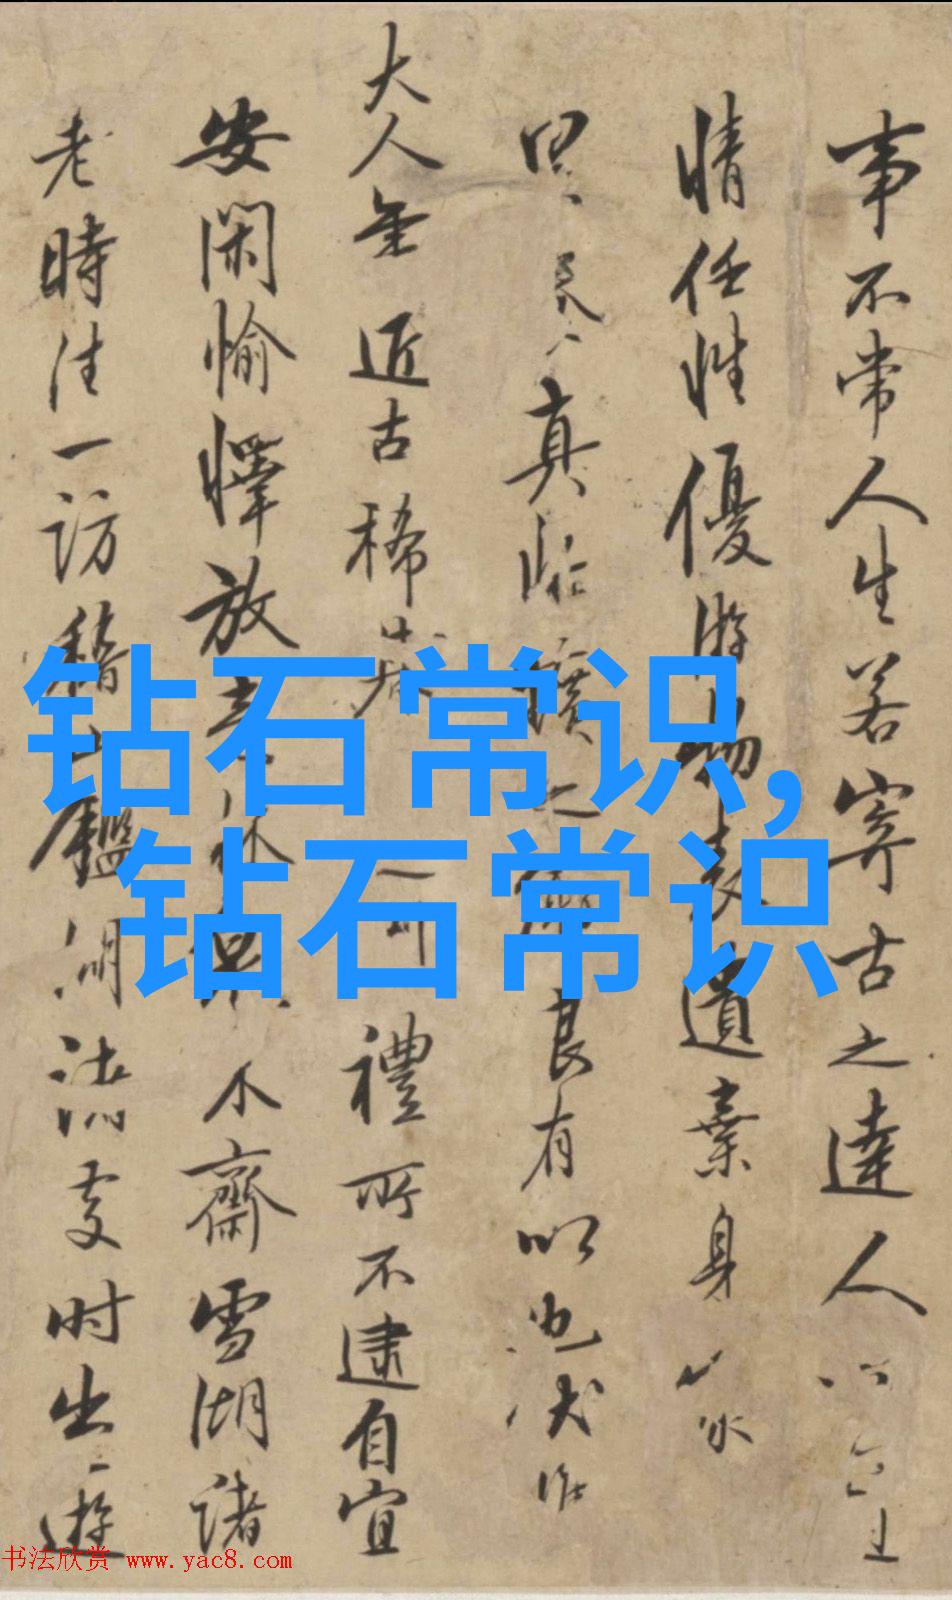 事不常人生若寄古之達人
情任性優游物表遺棄身
真臨 良有以也伏惟
大人年近古稀 禮所不逮自宜
安閑愉懌放 木齋雪湖諸
老時往一訪稽山鑑湖諸處时出一遊
钻石常识,
钻石常识
书法欣赏 www.yac8.com